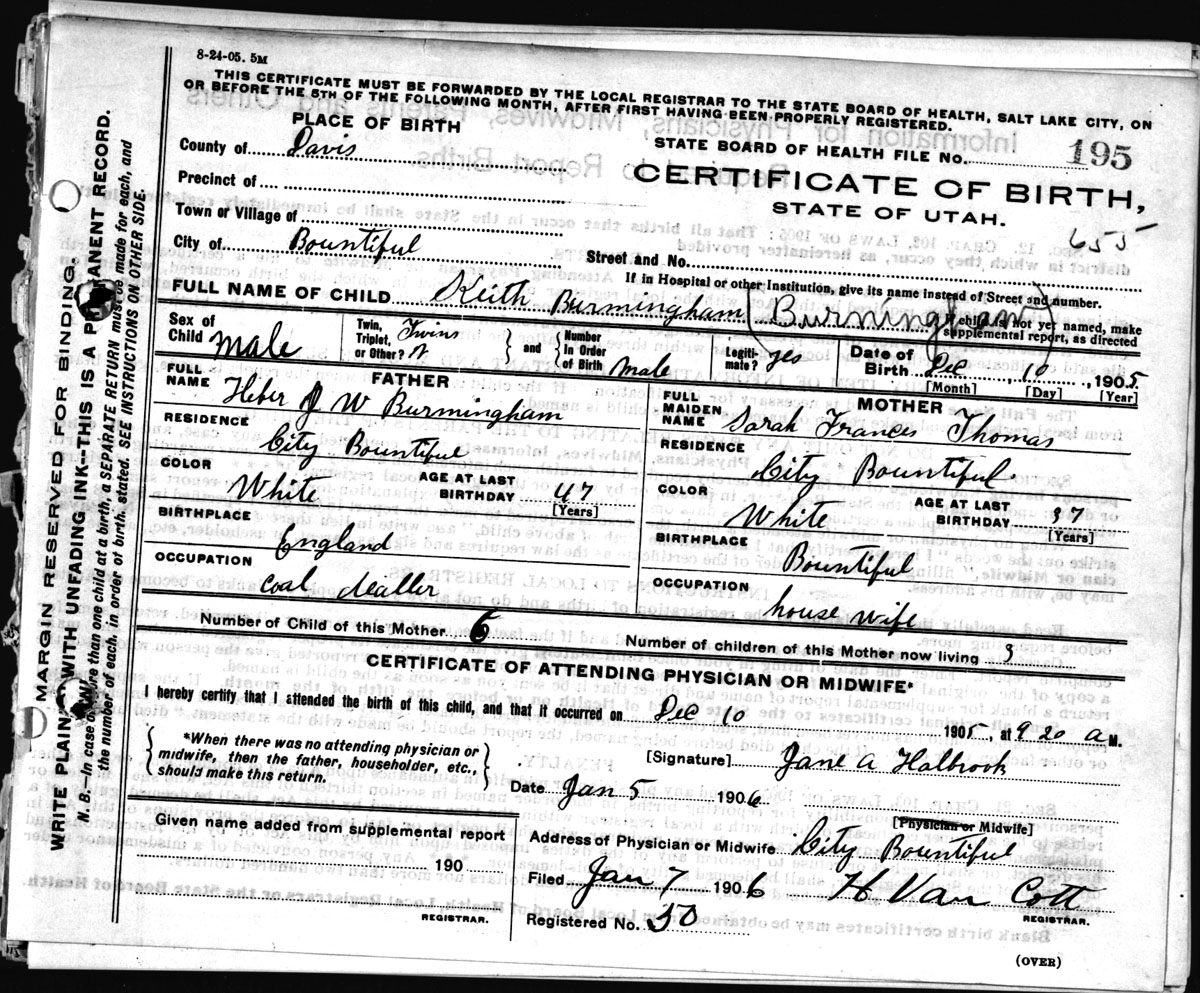 8-24-05. 5M
THIS CERTIFICATE MUST BE FORWARDED BY THE LOCAL REGISTRAR TO THE STATE BOARD OF HEALTH, SALT LAKE CITY, ON
OR BEFORE THE 5TH OF THE FOLLOWING MONTH, AFTER FIRST HAVING BEEN PROPERLY REGISTERED.
PLACE OF BIRTH
STATE BOARD OF HEALTH FILE No. 195
County of Davis
CERTIFICATE OF BIRTH,
Precinct of
STATE OF UTAH.
Town or Village of
655
City of Bountiful
Street and No.
If in Hospital or other Institution, give its name instead of Street and number.
FULL NAME OF CHILD Keith Burmingham (Burningham)
child is not yet named, make
supplemental report, as directed
Sex of Child male
Twin, Triplet, or Other? Twins
and
Number In Order of Birth male
Legiti-mate? yes
Date of Birth Dec 10, 1905
[Month] [Day] [Year]
FATHER
FULL NAME Heber J W Burmingham
RESIDENCE City Bountiful
COLOR White
AGE AT LAST BIRTHDAY 47
[Years]
BIRTHPLACE England
OCCUPATION coal dealler
MOTHER
FULL MAIDEN NAME Sarah Frances Thomas
RESIDENCE City Bountiful
COLOR White
AGE AT LAST BIRTHDAY 37
[Years]
BIRTHPLACE Bountiful
OCCUPATION house wife
Number of Child of this Mother 6
Number of children of this Mother now living 3
CERTIFICATE OF ATTENDING PHYSICIAN OR MIDWIFE*
I hereby certify that I attended the birth of this child, and that it occurred on Dec 10
1905, at 9 20 a M.
*When there was no attending physician or
midwife, then the father, householder, etc.,
should make this return.
[Signature] Jane A Holbrook
Date Jan 5 1906
[Physician or Midwife]
Given name added from supplemental report
190
REGISTRAR.
Address of Physician or Midwife City Bountiful
Filed Jan 7 1906 H Van Cott
REGISTRAR.
Registered No. 50
(OVER)
MARGIN RESERVED FOR BINDING.
WRITE PLAINLY WITH UNFADING INK—THIS IS A PERMANENT RECORD.
N. B.—In case of more than one child at a birth, a SEPARATE RETURN must be made for each, and
the number of each, in order of birth, stated. SEE INSTRUCTIONS ON OTHER SIDE.